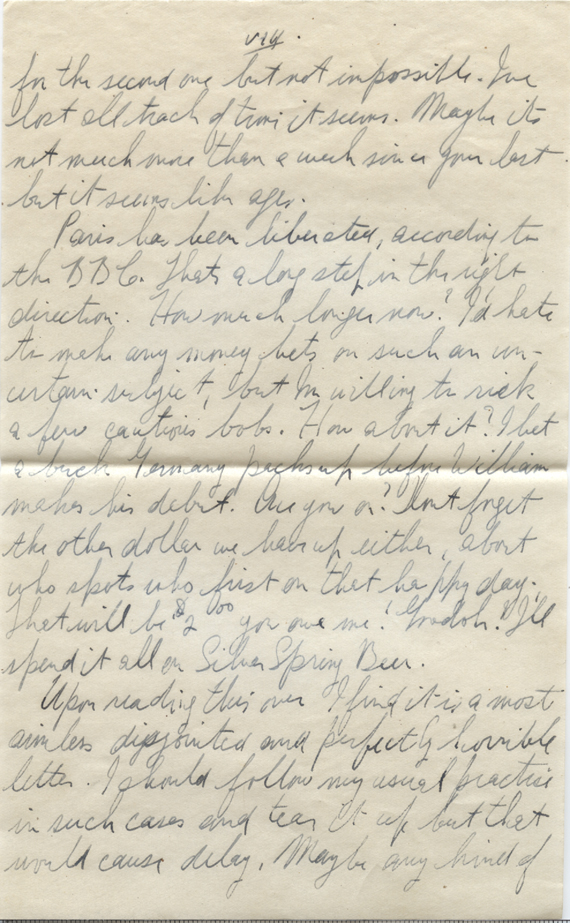 viii.
for the second one but not impossible. I've
lost all track of time it seems. Maybe its
not much more than a week since your last
but it seems like ages.
Paris has been liberated, according to
the BBC. Thats a long step in the right
direction. How much longer now? I'd hate
to make any money bets on such an un-
certain subject, but I'm willing to risk
a few cautious bobs. How about it? I bet
a buck Germany packs up before William
makes his debut. Are you on? Dont forget
the other dollar we have up either, about
who spots who first on that happy day.
That will be $2.00 you owe me! Goodoh! I'll
spend it all on Silver Spring Beer.
Upon reading this over I find it is a most
aimless disjointed and perfectly horrible
letter. I should follow my usual practise
in such cases and tear it up but that
would cause delay. Maybe any kind of